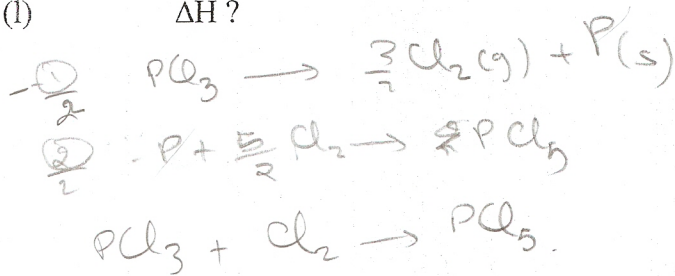 (l) ΔH ?
-①/2 PCl₃ → 3/2 Cl₂(g) + P(s)
②/2 P + 5/2 Cl₂ → PCl₅
PCl₃ + Cl₂ → PCl₅.